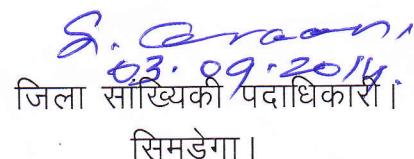 03.09.2014.
जिला सांख्यिकी पदाधिकारी।
सिमडेगा।